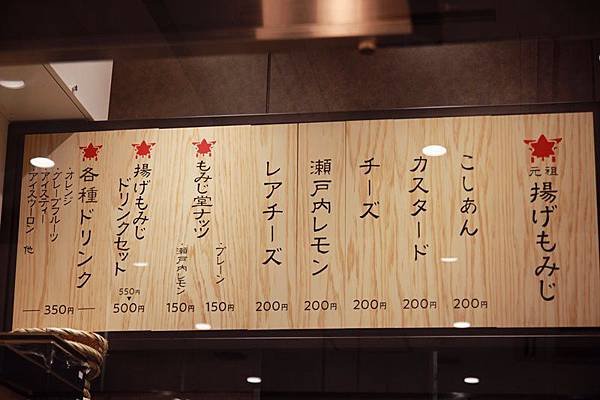 元祖
揚げもみじ
こしあん
200円
カスタード
200円
チーズ
200円
瀬戸内レモン
200円
レアチーズ
200円
もみじ堂ナッツ
・プレーン
150円
・瀬戸内レモン
150円
揚げもみじ
ドリンクセット
550円
500円
各種ドリンク
・オレンジ
・グレープフルーツ
・アイスティー
・アイスウーロン 他
350円